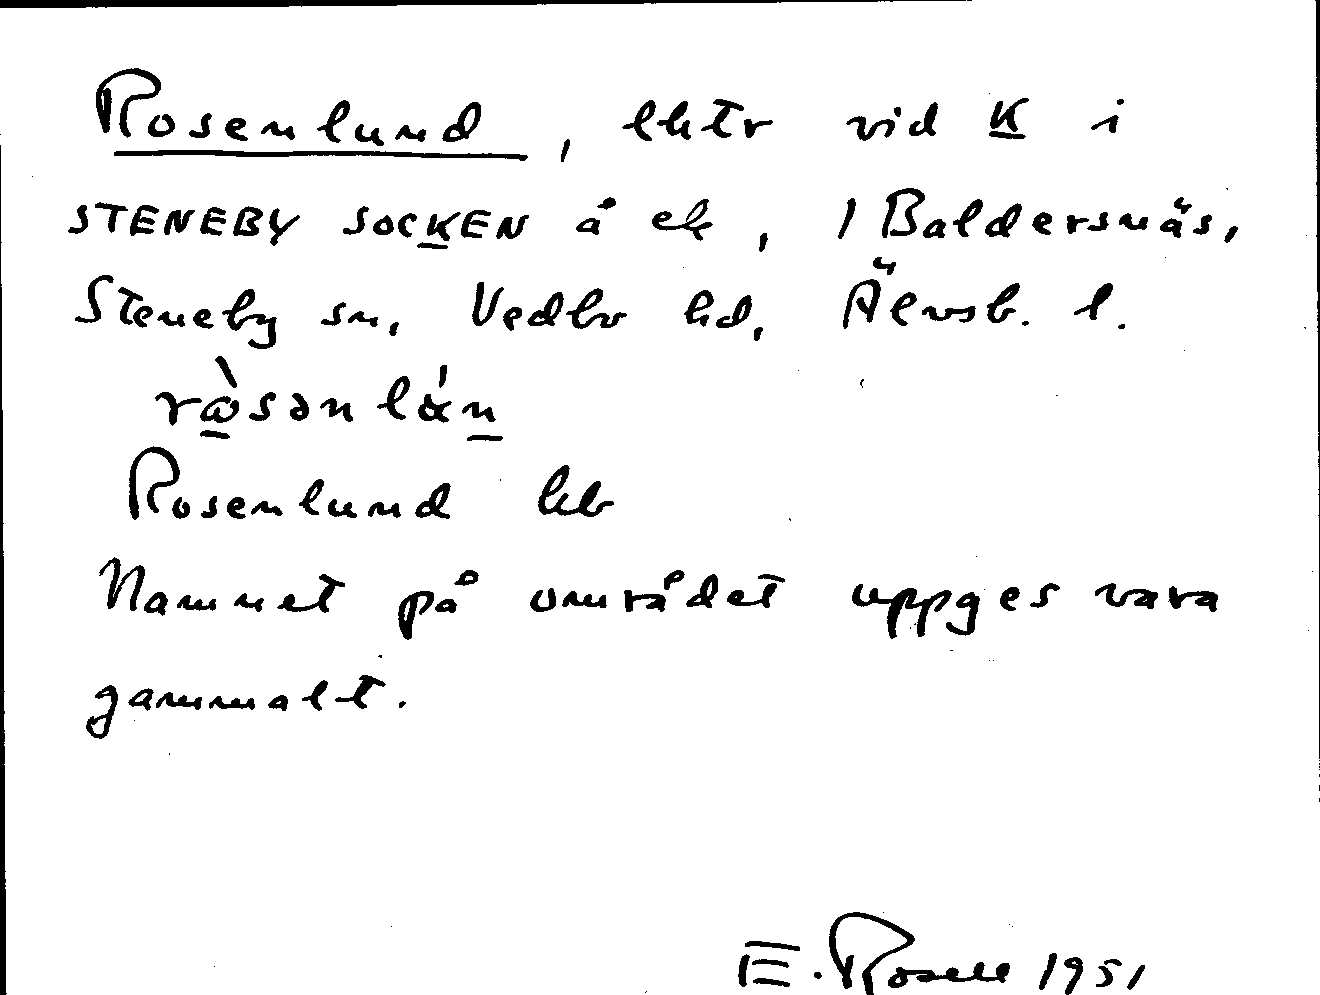 Rosenlund, lhtr vid K i
STENEBY SOCKEN å ek, 1 Baldersnäs,
Steneby sn, Vedbo hd, Älvsb. l.
rɷ̀sənlán
Rosenlund hb
Namnet på området uppges vara
gammalt.
E. Rosell 1951